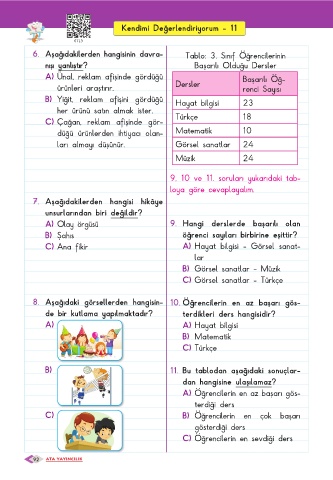 Kendimi Değerlendiriyorum - 11
6. Aşağıdakilerden hangisinin davra-
nışı yanlıştır?
A) Ünal, reklam afişinde gördüğü
ürünleri araştırır.
B) Yiğit, reklam afişini gördüğü
her ürünü satın almak ister.
C) Çoğan, reklam afişinde gör-
düğü ürünlerden ihtiyacı olan-
ları almayı düşünür.
7. Aşağıdakilerden hangisi hikâye
unsurlarından biri değildir?
A) Olay örgüsü
B) Şahıs
C) Ana fikir
8. Aşağıdaki görsellerden hangisin-
de bir kutlama yapılmaktadır?
A)
B)
C)
Tablo: 3. Sınıf Öğrencilerinin
Başarılı Olduğu Dersler
Dersler
Başarılı Öğ-
renci Sayısı
Hayat bilgisi 23
Türkçe 18
Matematik 10
Görsel sanatlar 24
Müzik 24
9, 10 ve 11. soruları yukarıdaki tab-
loya göre cevaplayalım.
9. Hangi derslerde başarılı olan
öğrenci sayıları birbirine eşittir?
A) Hayat bilgisi - Görsel sanat-
lar
B) Görsel sanatlar - Müzik
C) Görsel sanatlar - Türkçe
10. Öğrencilerin en az başarı gös-
terdikleri ders hangisidir?
A) Hayat bilgisi
B) Matematik
C) Türkçe
11. Bu tablodan aşağıdaki sonuçlar-
dan hangisine ulaşılamaz?
A) Öğrencilerin en az başarı gös-
terdiği ders
B) Öğrencilerin en çok başarı
gösterdiği ders
C) Öğrencilerin en sevdiği ders
92 ATA YAYINCILIK